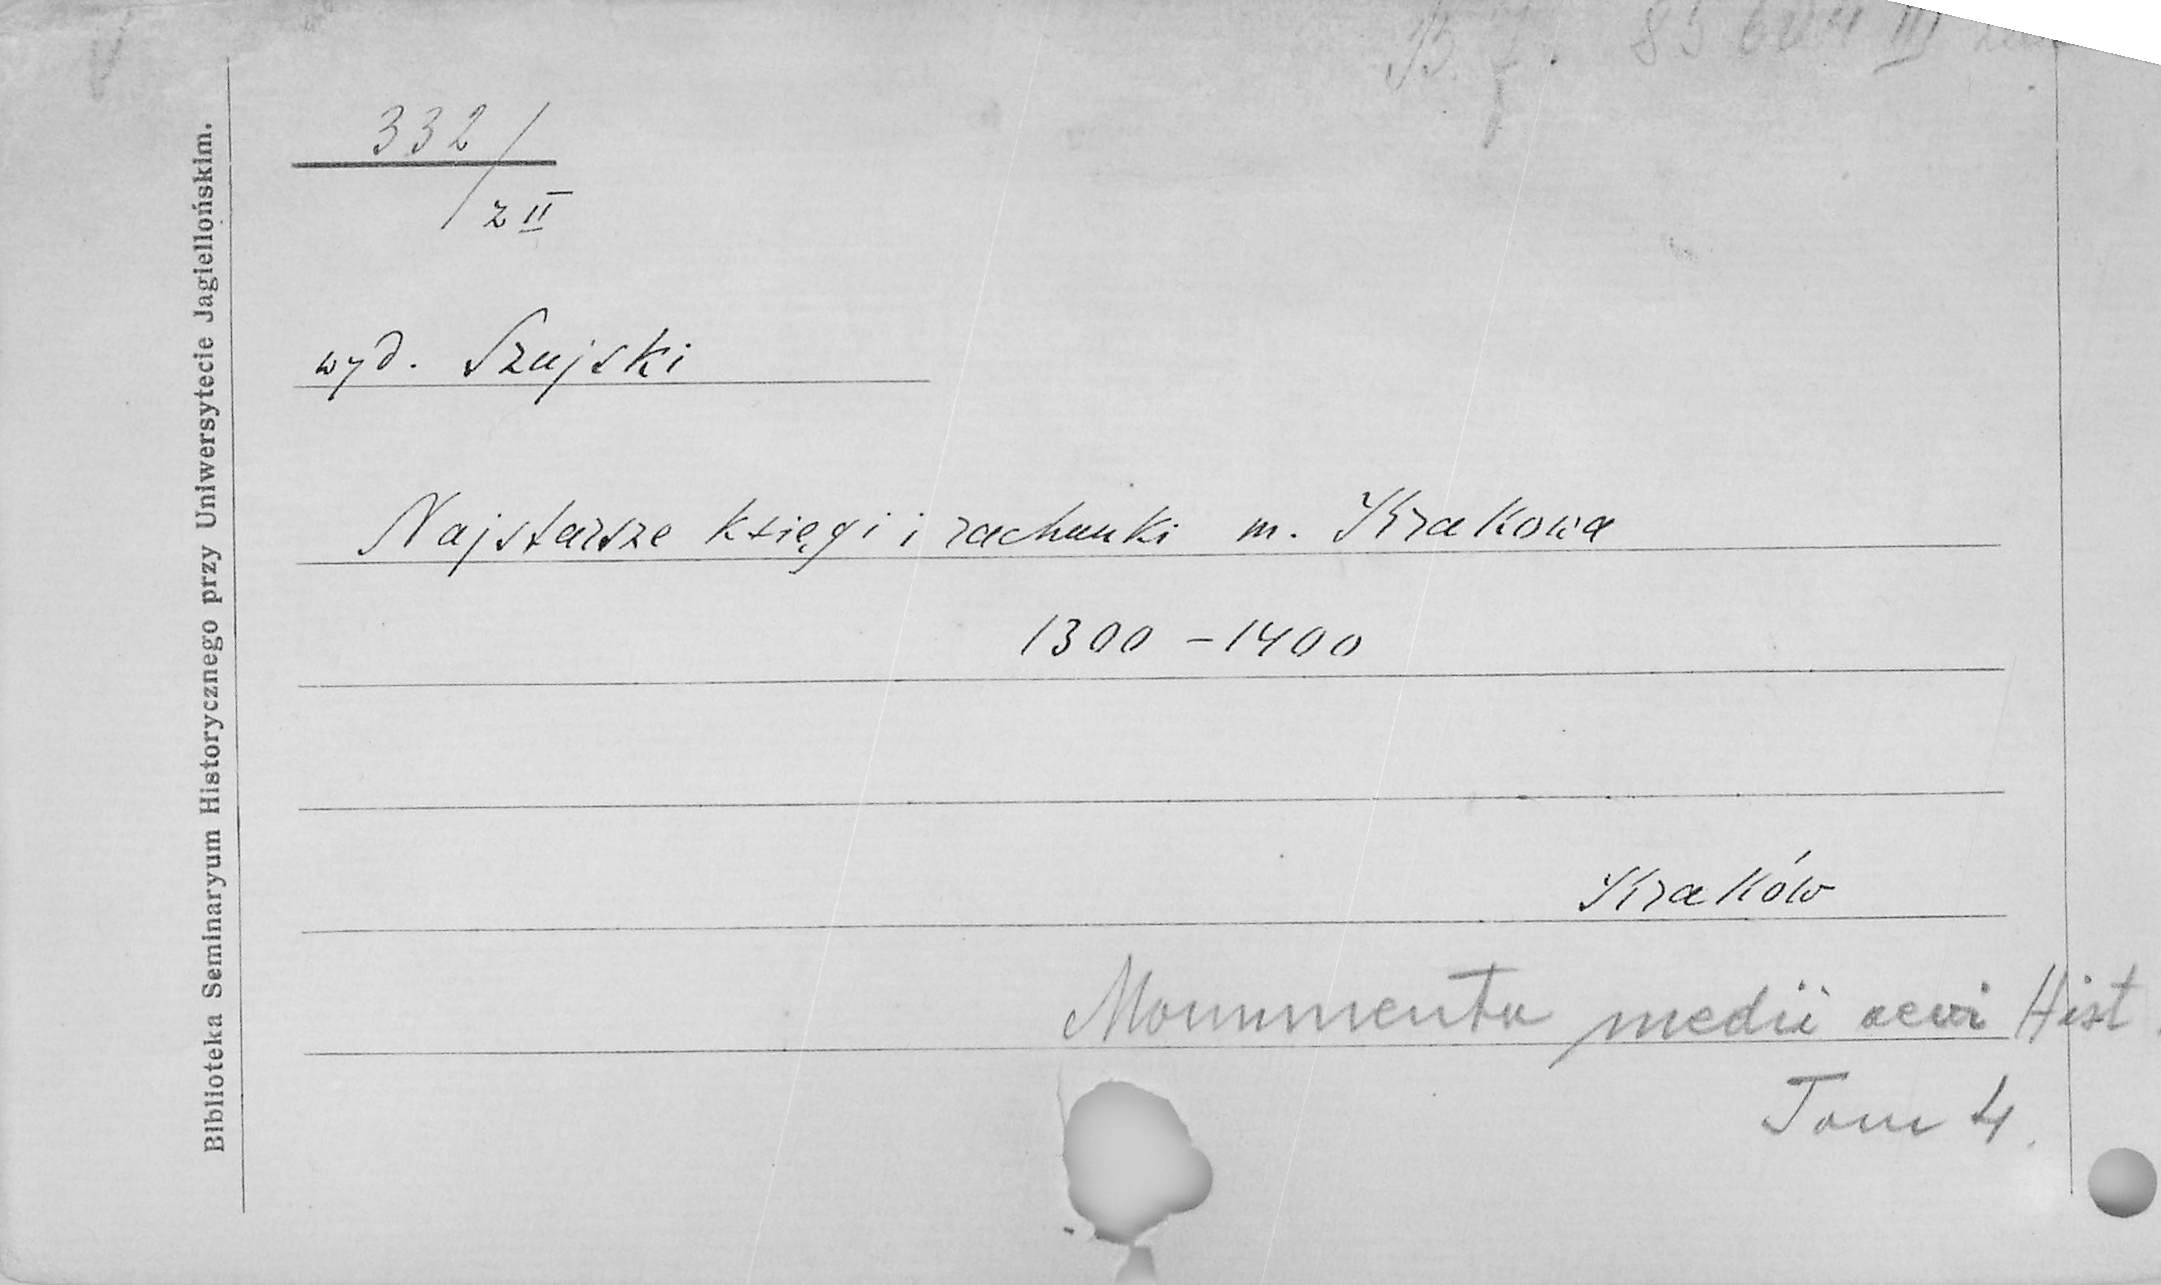 B. J. 85 604 III
332 / z II
wyd. Szujski
Najstarsze księgi i rachunki m. Krakowa
1300 - 1400
Kraków
Monumenta medii aevi Hist.
Tom 4.
Biblioteka Seminaryum Historycznego przy Uniwersytecie Jagiellońskim.